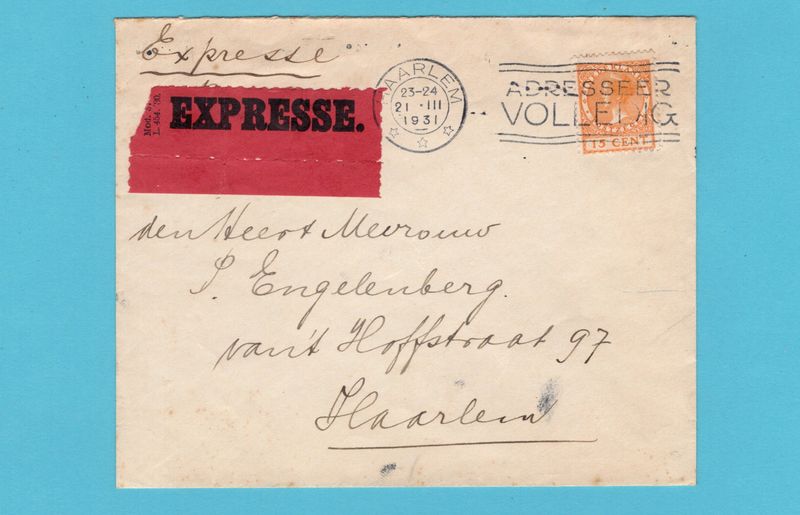 Expresse
Mod. 37.
L. 454. '30.
EXPRESSE.
HAARLEM
23-24
21 III
1931
ADRESSEER
VOLLEDIG
NEDERLAND
15 CENT
den Heer & Mevrouw
P. Engelenberg.
van 't Hoffstraat 97
Haarlem